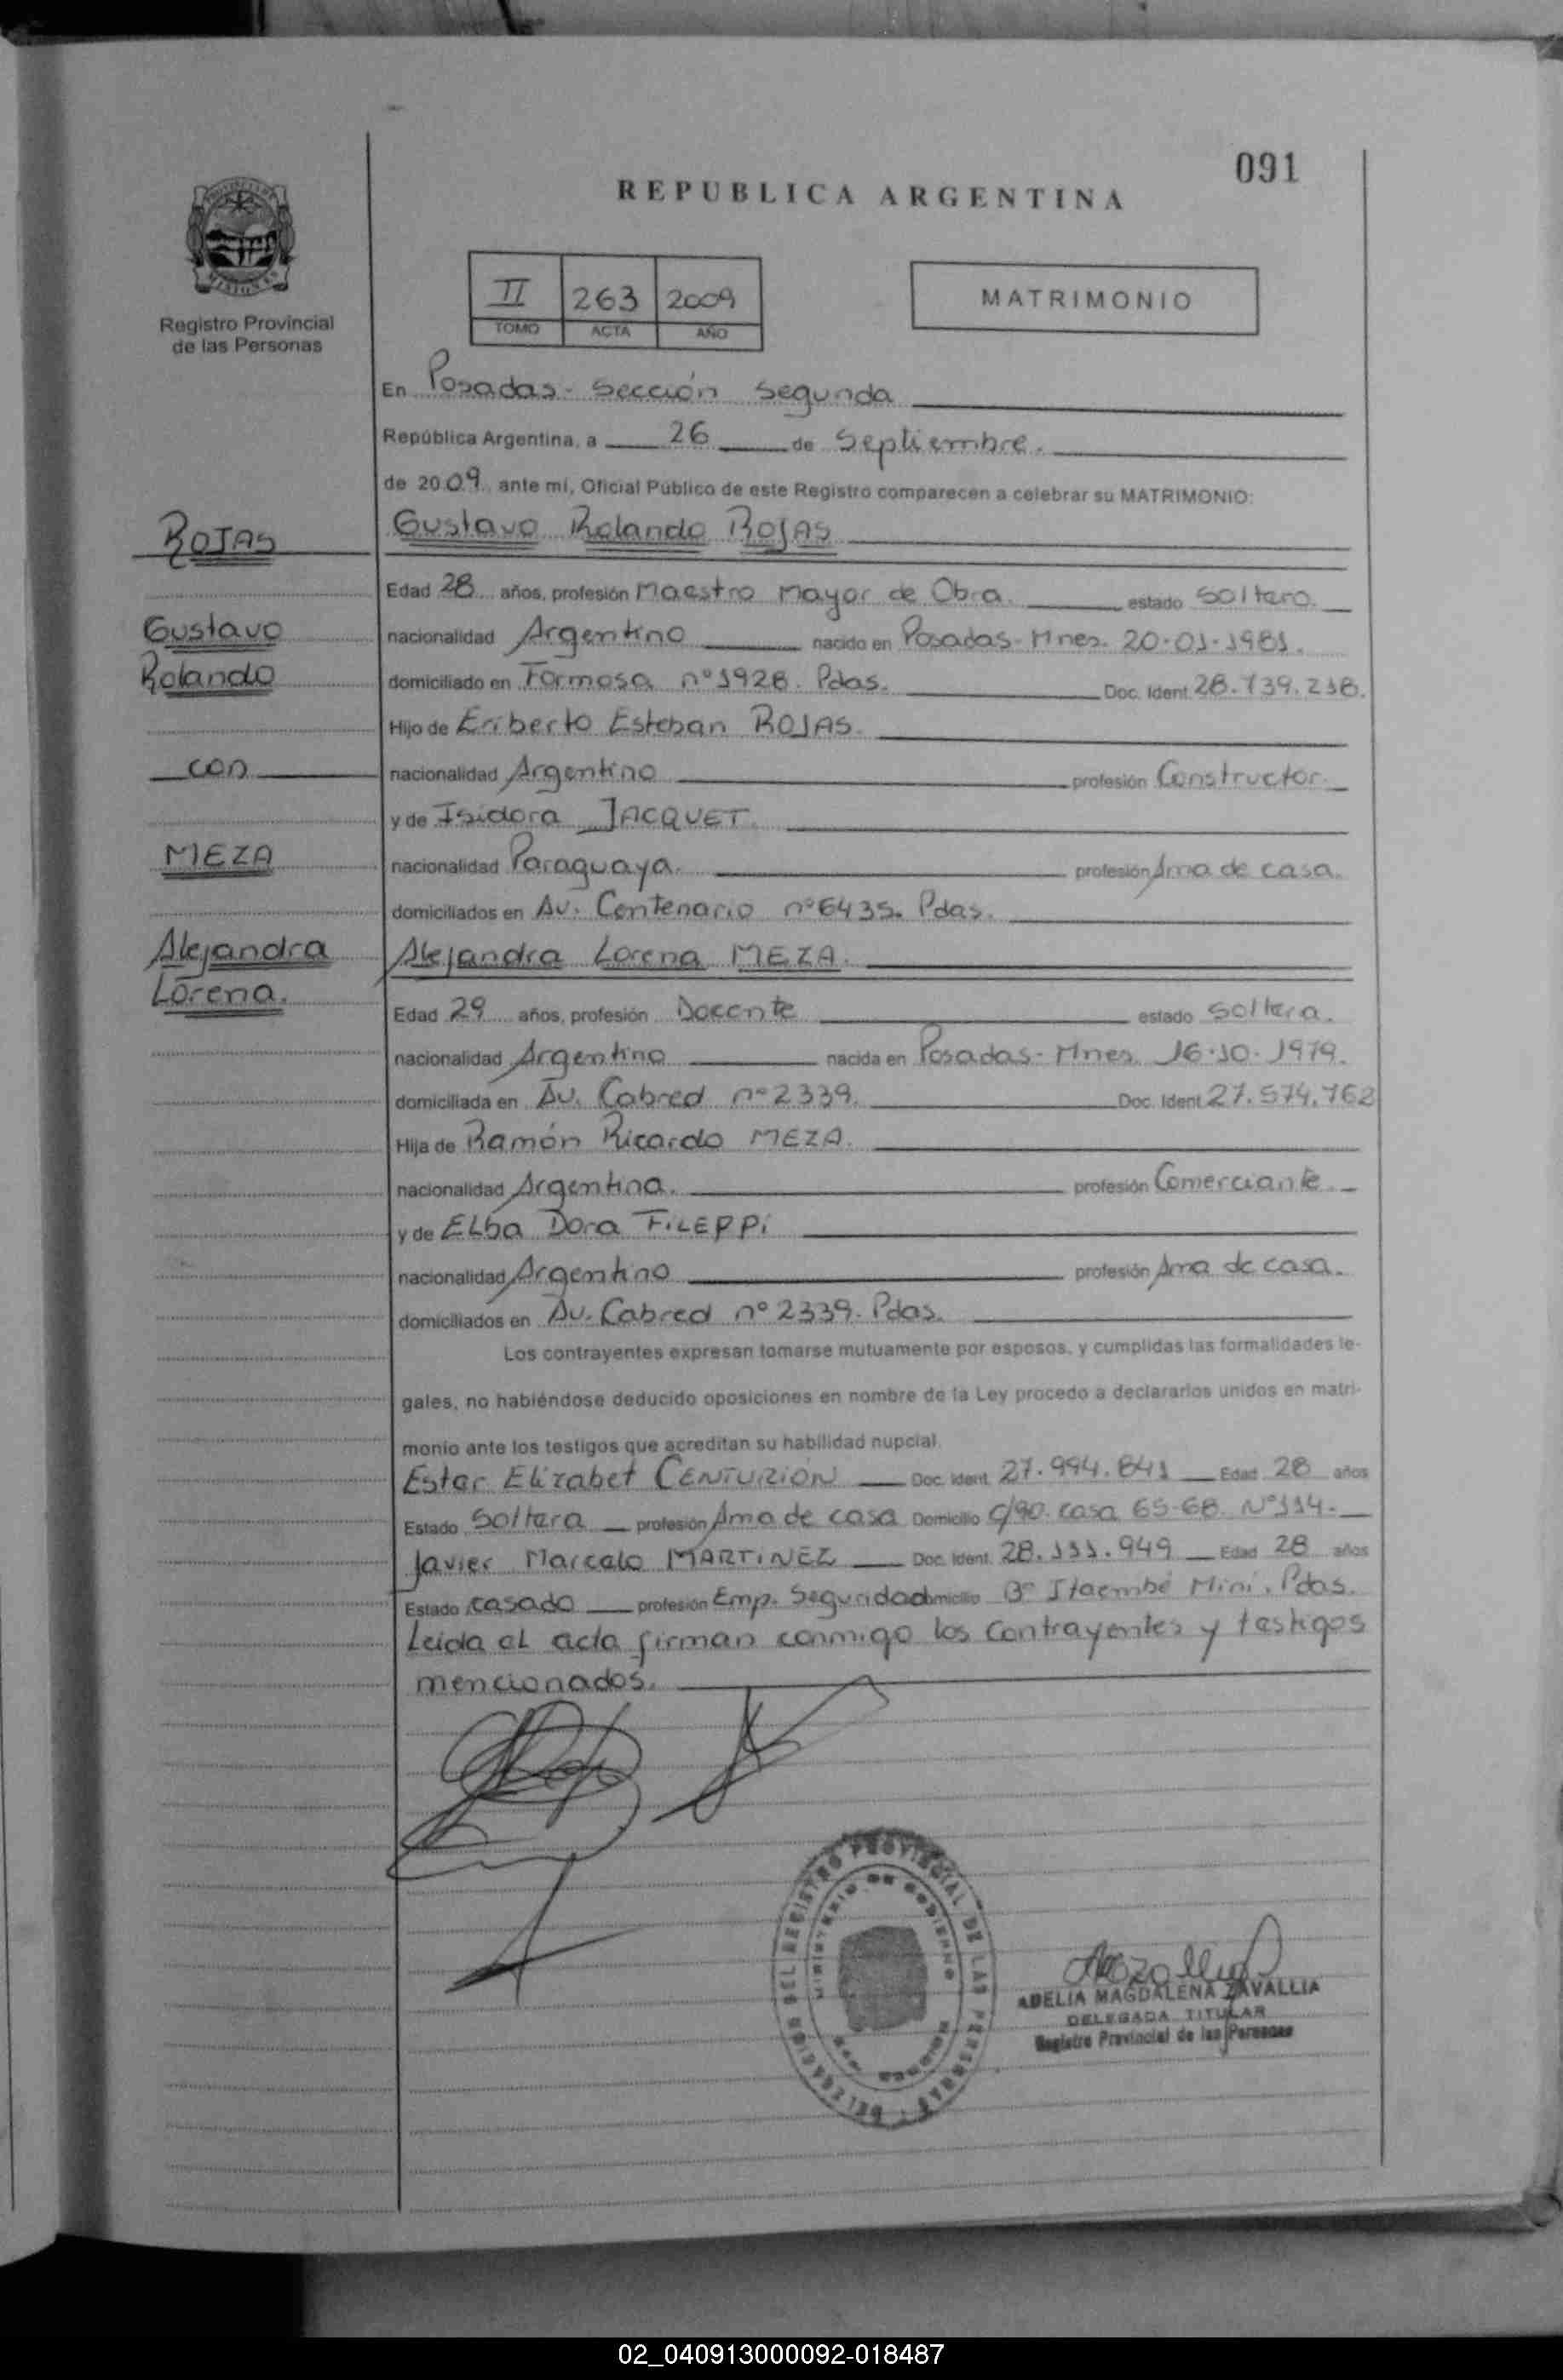 091
REPUBLICA ARGENTINA
Registro Provincial
de las Personas
II 263 2009
TOMO ACTA AÑO
MATRIMONIO
En Posadas - Sección Segunda
República Argentina, a 26 de Septiembre.
de 2009 ante mí, Oficial Público de este Registro comparecen a celebrar su MATRIMONIO:
ROJAS
Gustavo Rolando ROJAS
Edad 28 años, profesión Maestro Mayor de Obra. estado Soltero.
Gustavo
nacionalidad Argentino nacido en Posadas - Mnes. 20-01-1981.
Rolando
domiciliado en Formosa nº 1928. Pdas. Doc. Ident. 28.739.218.
Hijo de Eriberto Esteban ROJAS.
con
nacionalidad Argentino profesión Constructor.
y de Isidora JACQUET.
MEZA
nacionalidad Paraguaya. profesión Ama de casa.
domiciliados en Av. Centenario nº 6435. Pdas.
Alejandra
Alejandra Lorena MEZA.
Lorena.
Edad 29 años, profesión Docente estado Soltera.
nacionalidad Argentino nacida en Posadas - Mnes. 16-10-1979.
domiciliada en Av. Cabred nº 2339. Doc. Ident. 27.574.762
Hija de Ramón Ricardo MEZA.
nacionalidad Argentina. profesión Comerciante.
y de ELba Dora FiLEPPi
nacionalidad Argentino profesión Ama de casa.
domiciliados en Av. Cabred nº 2339. Pdas.
Los contrayentes expresan tomarse mutuamente por esposos, y cumplidas las formalidades le-
gales, no habiéndose deducido oposiciones en nombre de la Ley procedo a declararlos unidos en matri-
monio ante los testigos que acreditan su habilidad nupcial.
Ester Elizabet CENTURIÓN Doc. Ident. 27.994.841 Edad 28 años
Estado Soltera profesión Ama de casa Domicilio c/90. casa 65-68. Nº 114.
Javier Marcelo MARTiNEZ Doc. Ident. 28.131.949 Edad 28 años
Estado casado profesión Emp. Seguridad Domicilio Bº Itaembé Mini. Pdas.
Leida el acta firman conmigo los Contrayentes y testigos
mencionados.
DELEGACION DEL REGISTRO PROVINCIAL DE LAS PERSONAS
MINISTERIO DE GOBIERNO
ADELIA MAGDALENA ZAVALLIA
DELEGADA TITULAR
Registro Provincial de las Personas
02_040913000092-018487